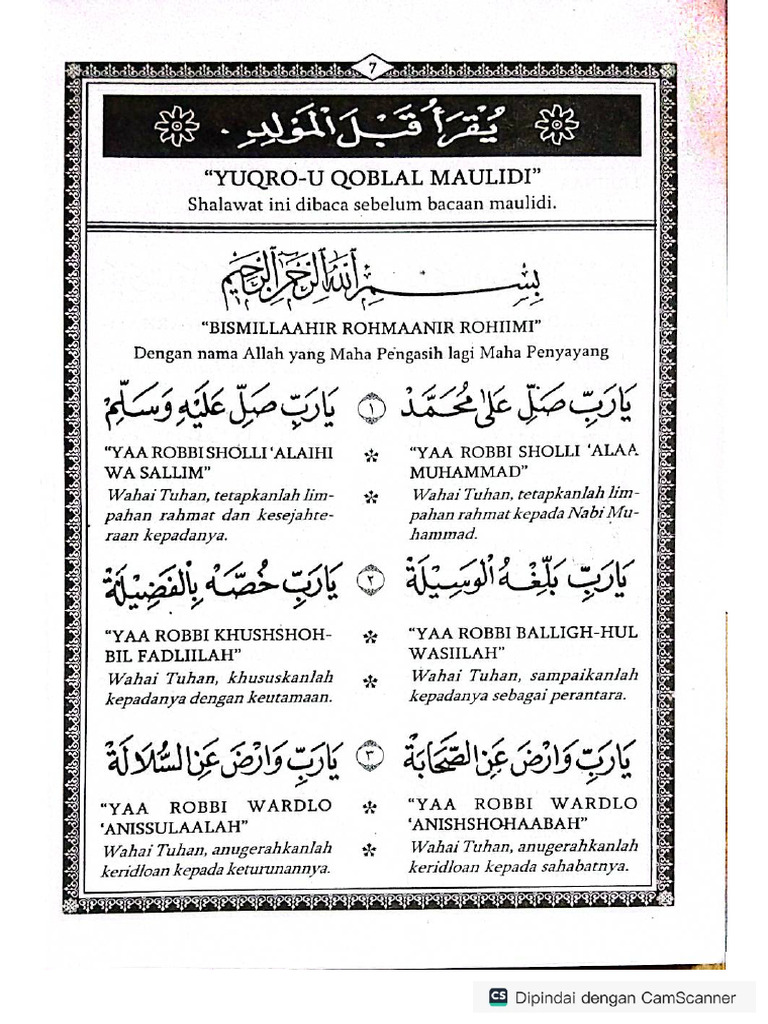 7
يُقْرَأُ قَبْلَ الْمَوْلِدِ.
“YUQRO-U QOBLAL MAULIDI”
Shalawat ini dibaca sebelum bacaan maulidi.
بِسْمِ اللهِ الرَّحْمٰنِ الرَّحِيْمِ
“BISMILLAAHIR ROHMAANIR ROHIIMI”
Dengan nama Allah yang Maha Pengasih lagi Maha Penyayang
يَارَبِّ صَلِّ عَلٰى مُحَمَّدْ ١ يَارَبِّ صَلِّ عَلَيْهِ وَسَلِّمْ
“YAA ROBBI SHOLLI ‘ALAA
MUHAMMAD”
Wahai Tuhan, tetapkanlah lim-
pahan rahmat kepada Nabi Mu-
hammad.
“YAA ROBBI SHOLLI ‘ALAIHI
WA SALLIM”
Wahai Tuhan, tetapkanlah lim-
pahan rahmat dan kesejahte-
raan kepadanya.
يَارَبِّ بَلِّغْهُ الْوَسِيْلَةْ ٢ يَارَبِّ خُصَّهْ بِالْفَضِيْلَةْ
“YAA ROBBI BALLIGH-HUL
WASIILAH”
Wahai Tuhan, sampaikanlah
kepadanya sebagai perantara.
“YAA ROBBI KHUSHSHOH-
BIL FADLIILAH”
Wahai Tuhan, khususkanlah
kepadanya dengan keutamaan.
يَارَبِّ وَارْضَ عَنِ الصَّحَابَةْ ٣ يَارَبِّ وَارْضَ عَنِ السُّلَالَةْ
“YAA ROBBI WARDLO
‘ANISHSHOHAABAH”
Wahai Tuhan, anugerahkanlah
keridloan kepada sahabatnya.
“YAA ROBBI WARDLO
‘ANISSULAALAH”
Wahai Tuhan, anugerahkanlah
keridloan kepada keturunannya.
CS Dipindai dengan CamScanner